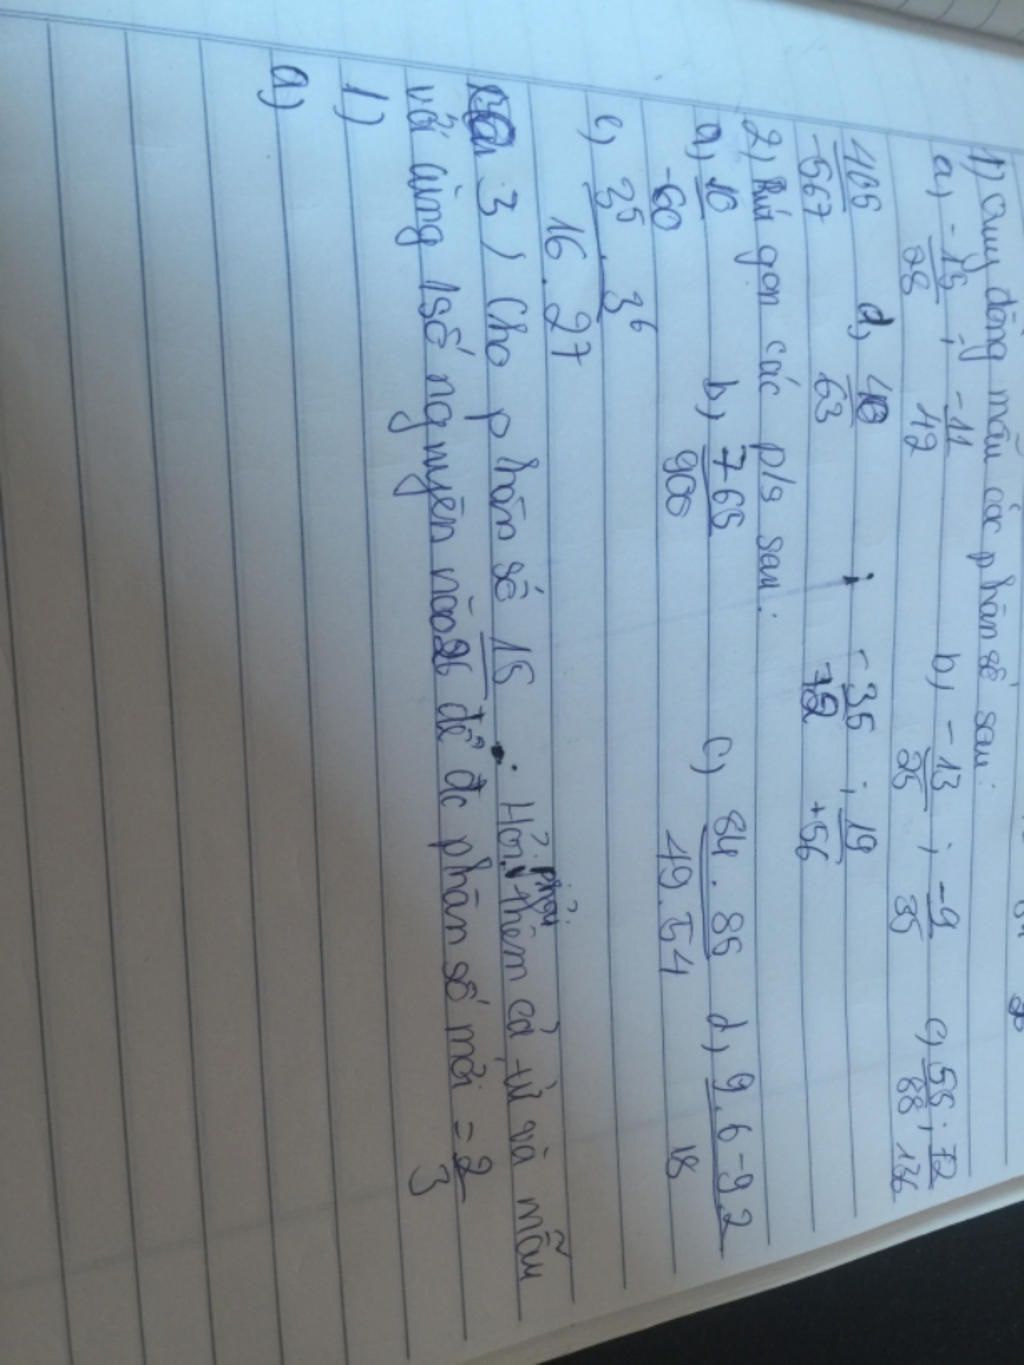 1) Quy đồng mẫu các phân số sau:
a) -15/28 ; -11/42 b) -13/25 ; -9/35 c) 55/88 ; 72/136
405/-567 d) 40/63 ; -35/72 ; 19/+56
2) Rút gọn các p/s sau:
a) 10/-60 b) 765/900 c) 84.85/49.54 d) 9.6-9.2/18
e) 3^5.3^6/16.27
Bài 3) Cho phân số 15/26. Hỏi phải thêm cả tử và mẫu
với cùng 1 số nguyên nào để đc phân số mới = 2/3
1)
a)